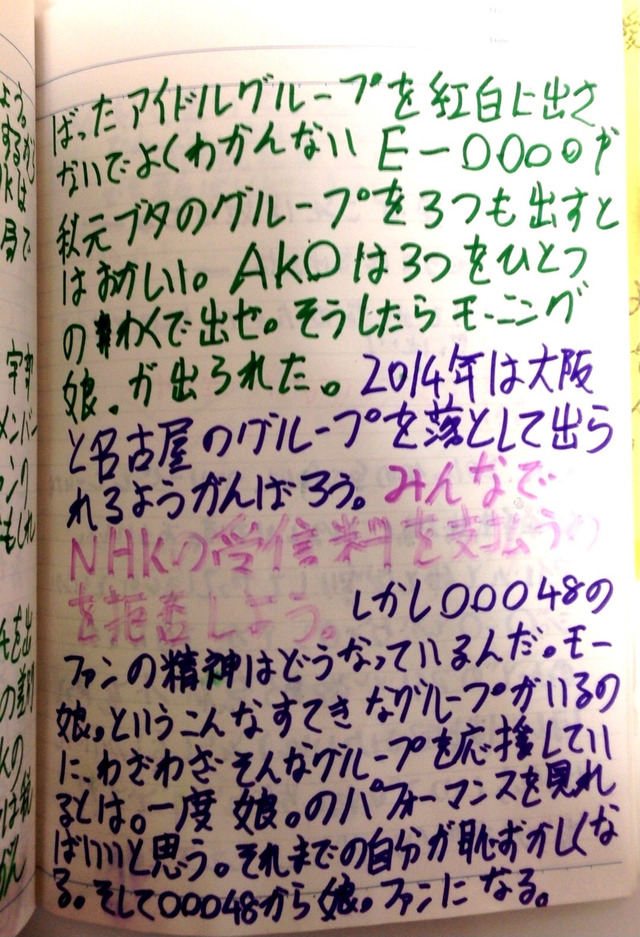 ばったアイドルグループを紅白に出さ
ないでよくわかんないE-〇〇〇〇や
秋元ブタのグループを3つも出すと
はおかしい。AK〇は3つをひとつ
のわくで出せ。そうしたらモーニング
娘。が出られた。2014年は大阪
と名古屋のグループを落として出ら
れるようがんばろう。みんなで
NHKの受信料を支払うの
を拒否しよう。しかし〇〇〇48の
ファンの精神はどうなっているんだ。モー
娘。というこんなすてきなグループがいるの
に、わざわざそんなグループを応援してい
るとは。一度娘。のパフォーマンスを見れ
ばいいと思う。それまでの自分が恥ずかしくな
る。そして〇〇〇48から娘。ファンになる。